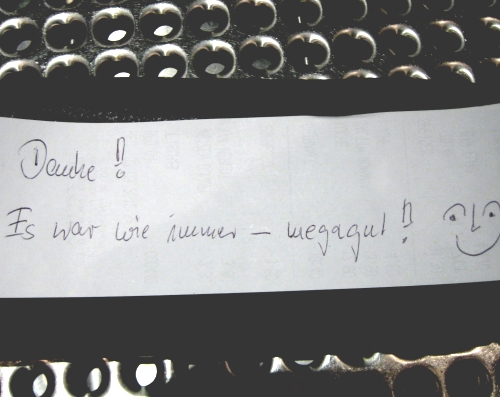 Danke!!
Es war wie immer – megagut!!